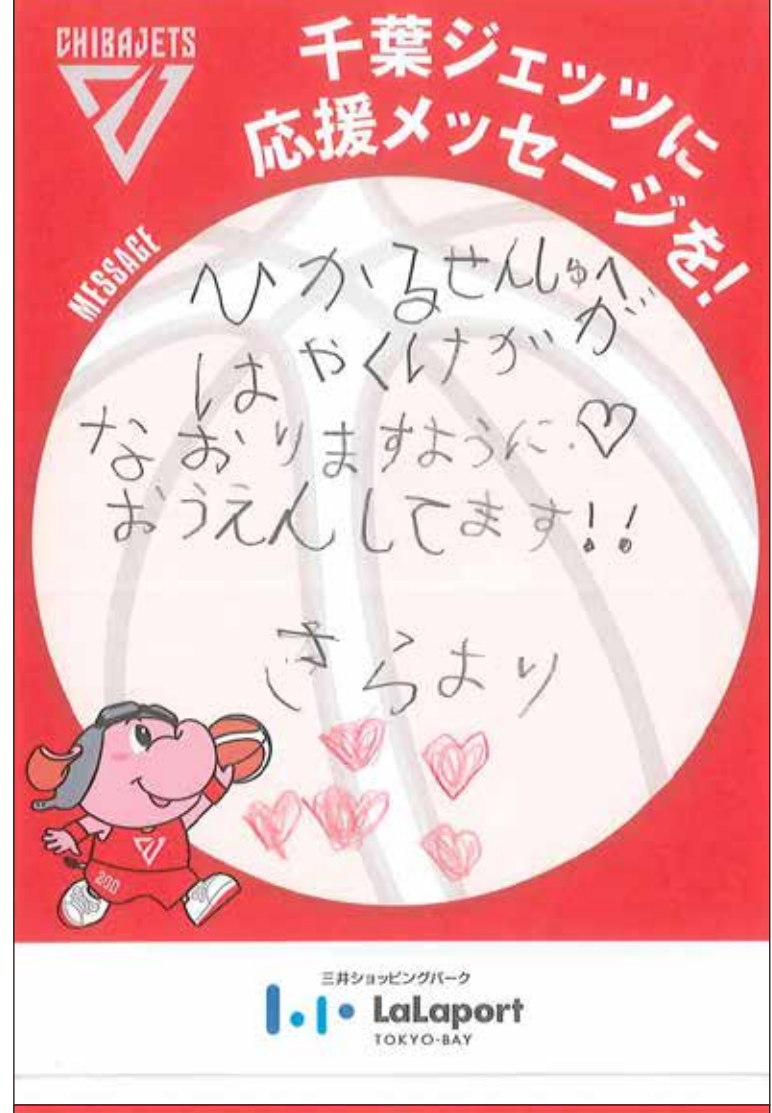 CHIBAJETS
千葉ジェッツに
応援メッセージを!
MESSAGE
ひかるせんしゅへ
はやくけがが
なおりますように♡
おうえんしてます!!
さらより
200
三井ショッピングパーク
LaLaport
TOKYO-BAY